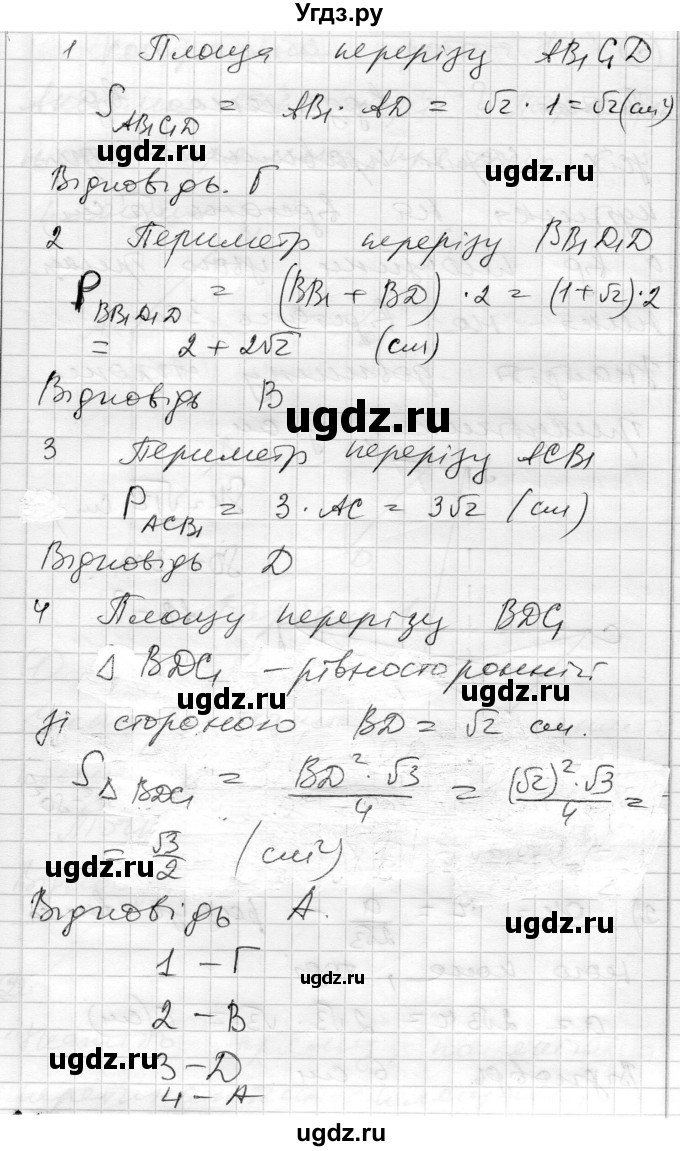 Угдз.ру
1 Площа перерізу AB₁C₁D
S_AB₁C₁D = AB₁ · AD = √2 · 1 = √2 (см²)
ugdz.ru ugdz.ru
Відповідь. Г
2 Периметр перерізу BB₁D₁D
P_BB₁D₁D = (BB₁ + BD) · 2 = (1+√2) · 2
= 2 + 2√2 (см)
Відповідь В
ugdz.ru
3 Периметр перерізу ACB₁
P_ACB₁ = 3 · AC = 3√2 (см)
Відповідь D
4 Площу перерізу BDC₁
△ BDC₁ – рівносторонній
ugdz.ru ugdz.ru
зі стороною BD = √2 см.
S_△BDC₁ = BD² · √3 / 4 = (√2)² · √3 / 4 =
= √3 / 2 (см²)
ugdz.ru ugdz.ru
Відповідь А.
1 – Г
ugdz.ru
2 – В
3 – D
ugdz.ru ugdz.ru
4 – А
ugdz.ru